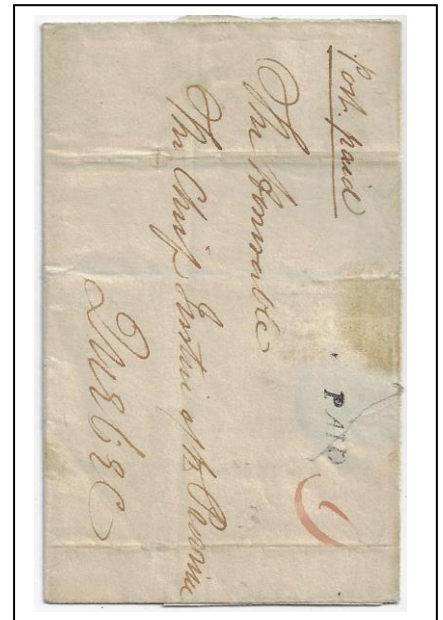 Post. paid
PAID
The Honorable
The Chief Justice of the Province
Quebec